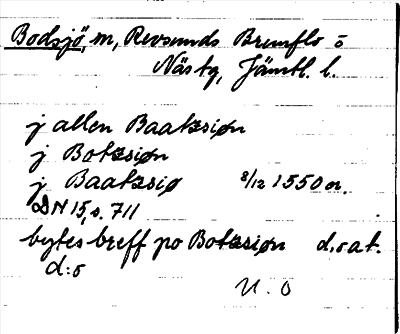 Bodsjö, m, Revsunds Brunflo o
Nästg, Jämtl. l.
j allen Baatzsiøn
j Botzsiøn
j Baatzsiø 8/12 1550 m.
DN 15, s. 711
bytes breff po Botzsiøn d. o a t.
d:o
N. O